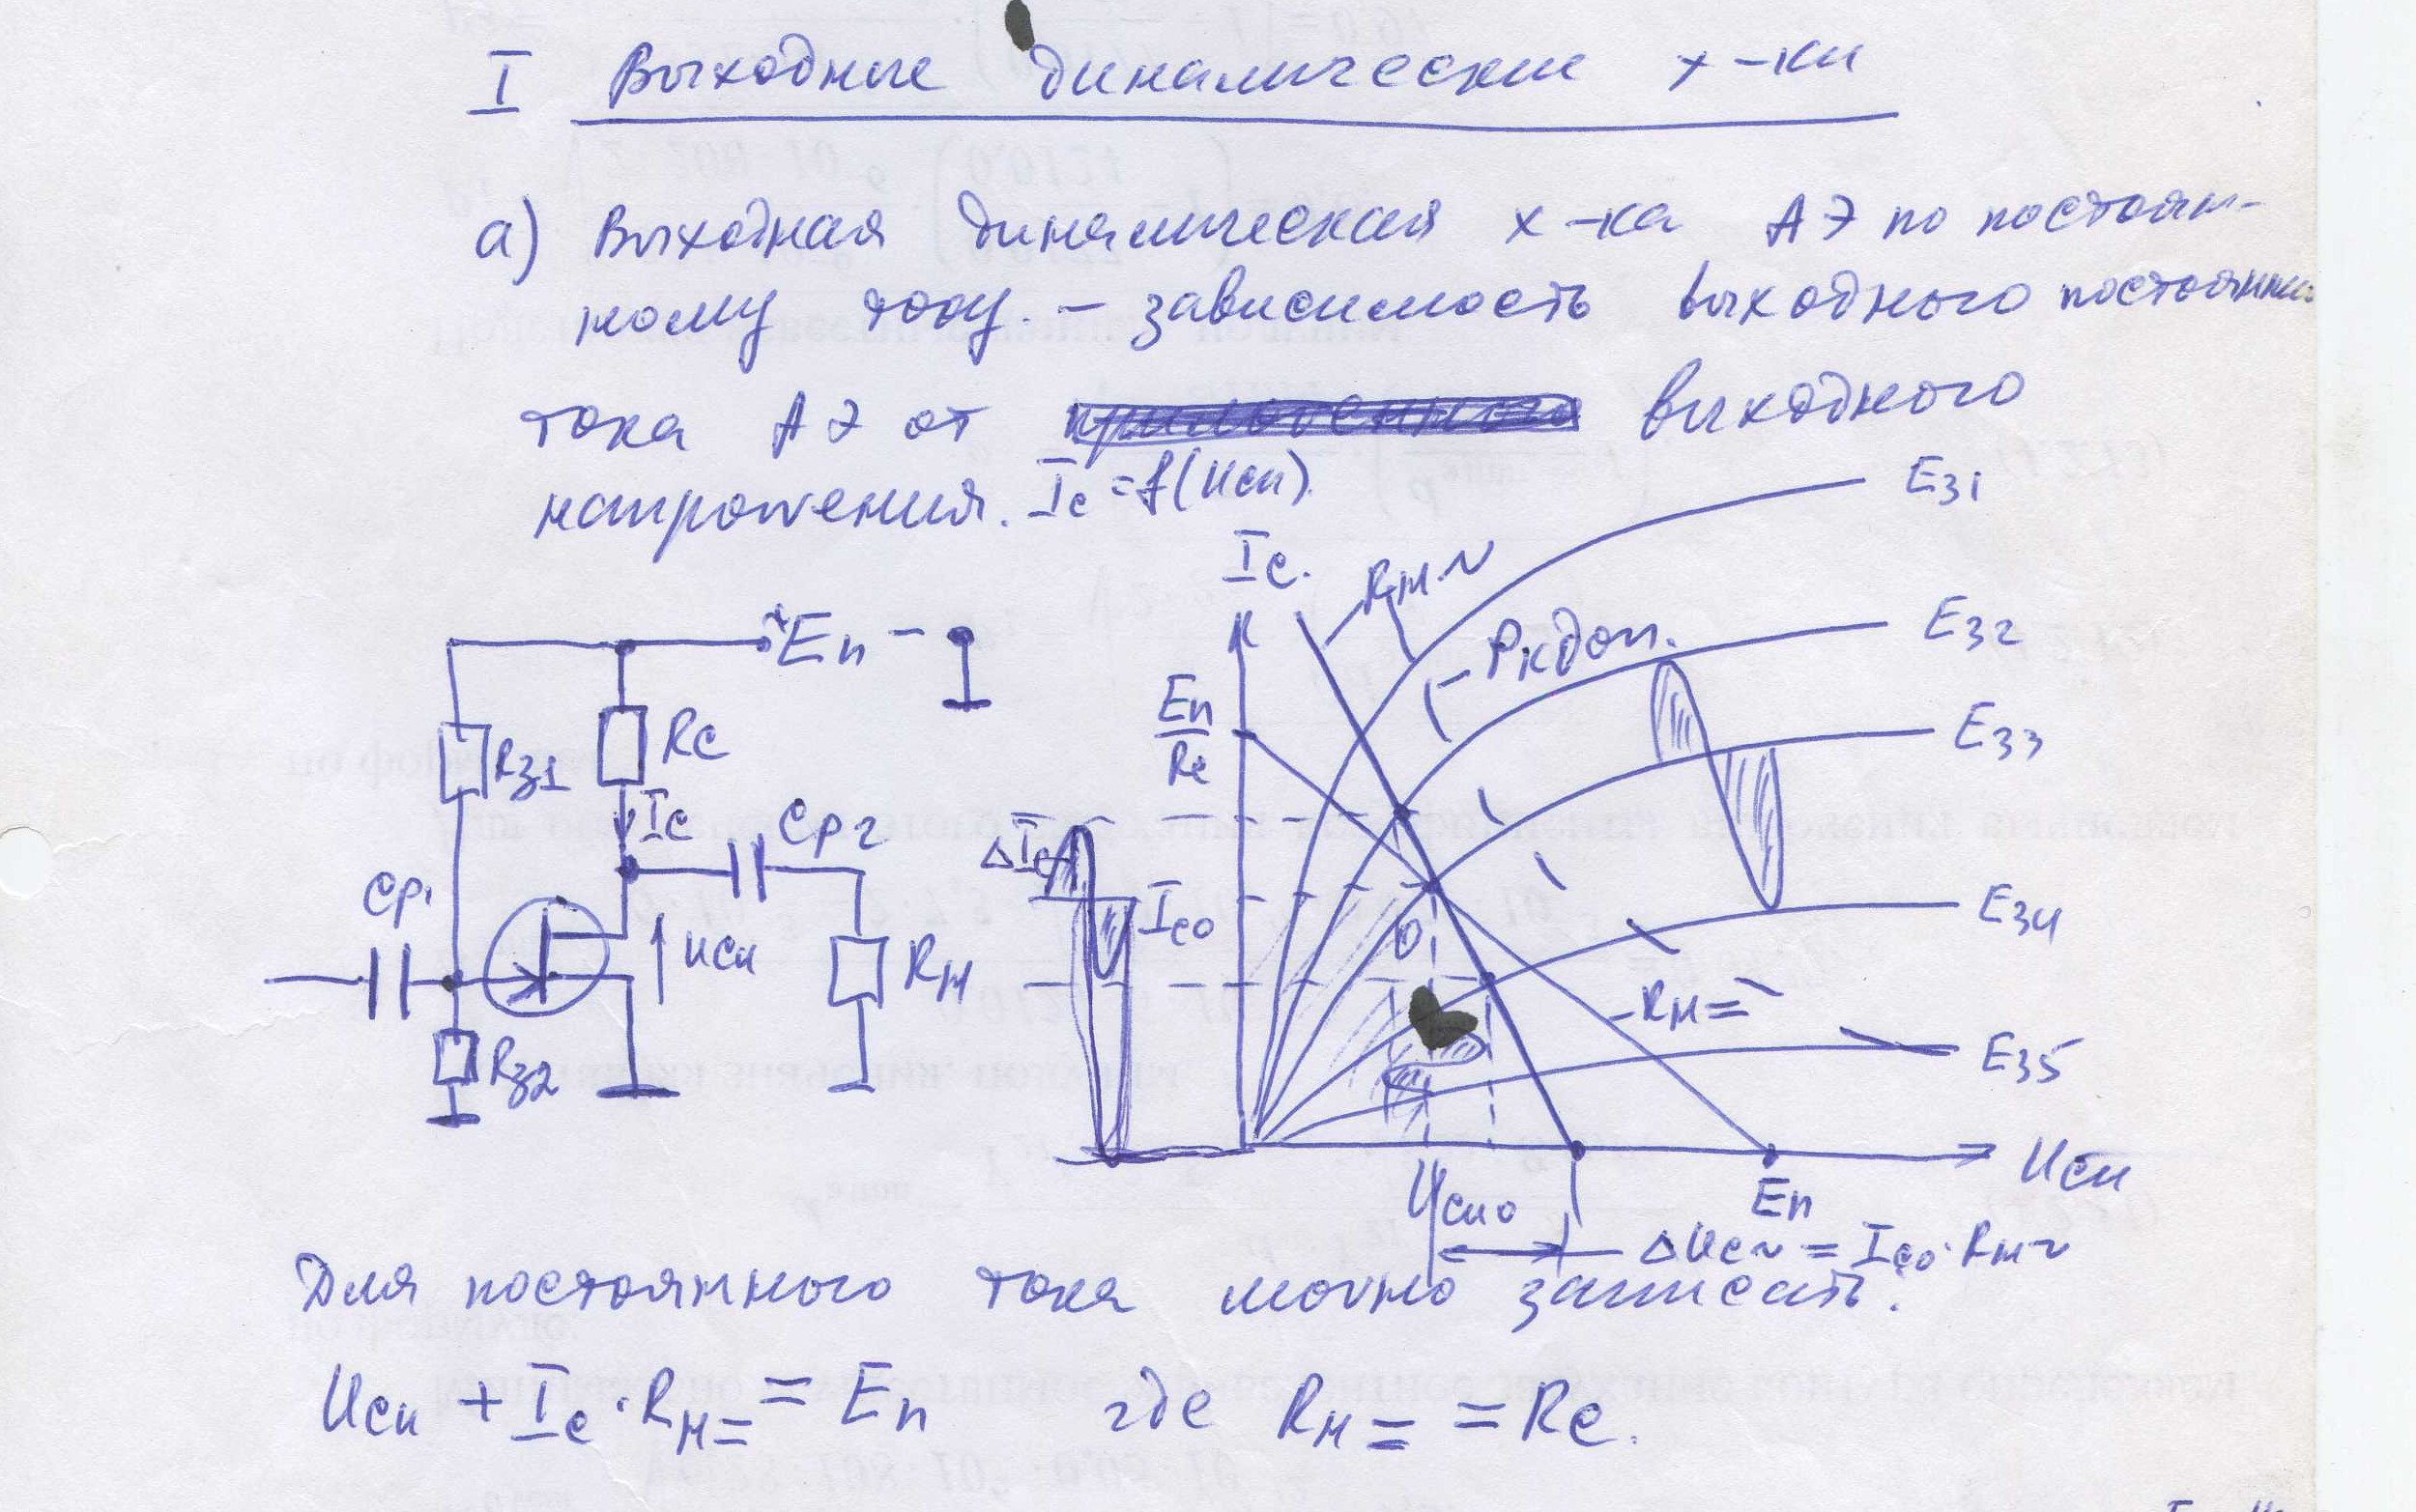 I Выходные динамические х-ки
а) Выходная динамическая х-ка АЭ по постоян-
ному току. – зависимость выходного постоянного
тока АЭ от выходного
напряжения. Ic = f(Uси).
Eз1
Ic.
Rн~
+Eп –
Pкдоп.
Eз2
Eп
Rc
Rз1
Rc
Eз3
Ic
Cр2
ΔIc
Cр1
Ic0
Eз4
0
Uси
Rн
Rн=
Rз2
Eз5
Uси
Uси0
Eп
ΔUс~ = Ic0·Rн~
Для постоянного тока можно записать:
Uси + Ic·Rн= = Eп где Rн= = Rc.